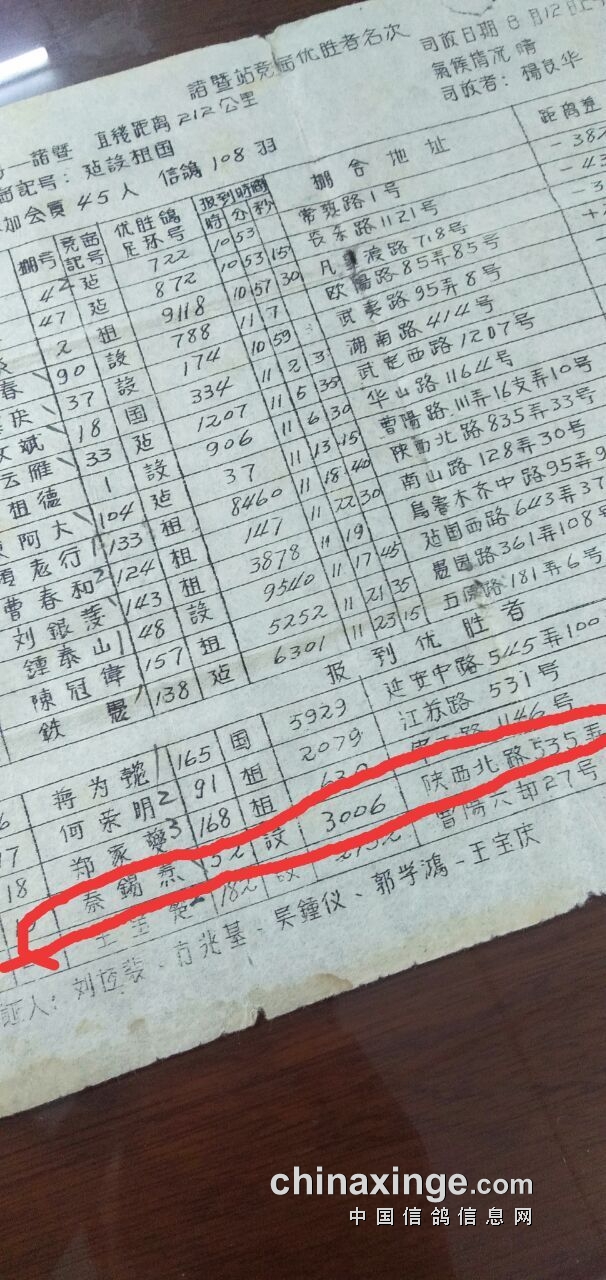 諸暨站竞面优胜者名次
司放日期 8月12日上
一諸暨 直线距离212公里
氣候情况 晴
面記号：跕設祖国
司放者：楊良华
加会員45人 信鴿108羽
棚号 竞面記号 优胜鴿足环号 报到時間 時 分 秒 棚合地址 距离差
42 跕 722 10 53 常熟路1号 -382
47 跕 872 10 53 15 長乐路1121号
2 祖 9118 10 57 30 渡路718号
春 90 設 788 11 7 欧陽路85弄85号
37 設 174 10 59 武夷路95弄8号
斌 18 国 334 11 2 湖南路414号
云雁 33 跕 1207 11 5 35 武定西路1207号
祖德 1 設 906 11 6 30 华山路1164号
阿大 104 跕 37 11 13 15 曹陽路111弄16支弄10号
老行 133 祖 8460 11 18 40 陕西北路835弄33号
曹春和 124 祖 147 11 22 30 南山路128弄30号
刘銀 143 祖 3878 11 19 烏魯木齐中路95弄9
鍾泰山 48 設 9540 11 17 45 西路643弄37
陳冠偉 157 祖 5252 11 21 35 愚园路361弄108号
鉄 138 跕 6301 11 23 15 路181弄6号
报到优胜者
6 蒋为 165 国 5929 延安中路545弄100
17 何荣明 91 祖 2079 江苏路531号
18 郑家 168 祖 1146号
秦錫 52 設 3006 陕西北路535弄
王 182 27号
証人：刘 、方兆基、吴鍾仪、郭学鴻、王宝庆
chinaxinge.com
中国信鸽信息网